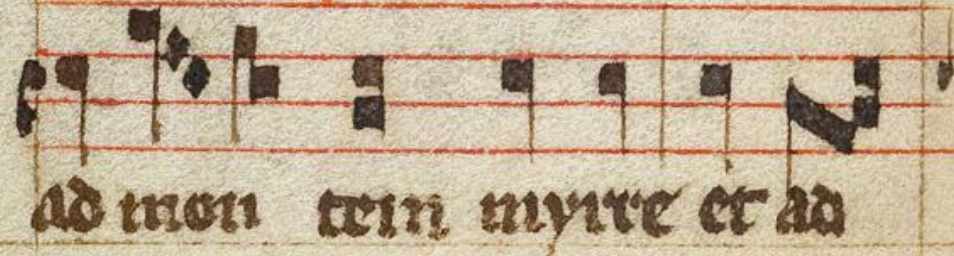 ad mon tem myrre et ad